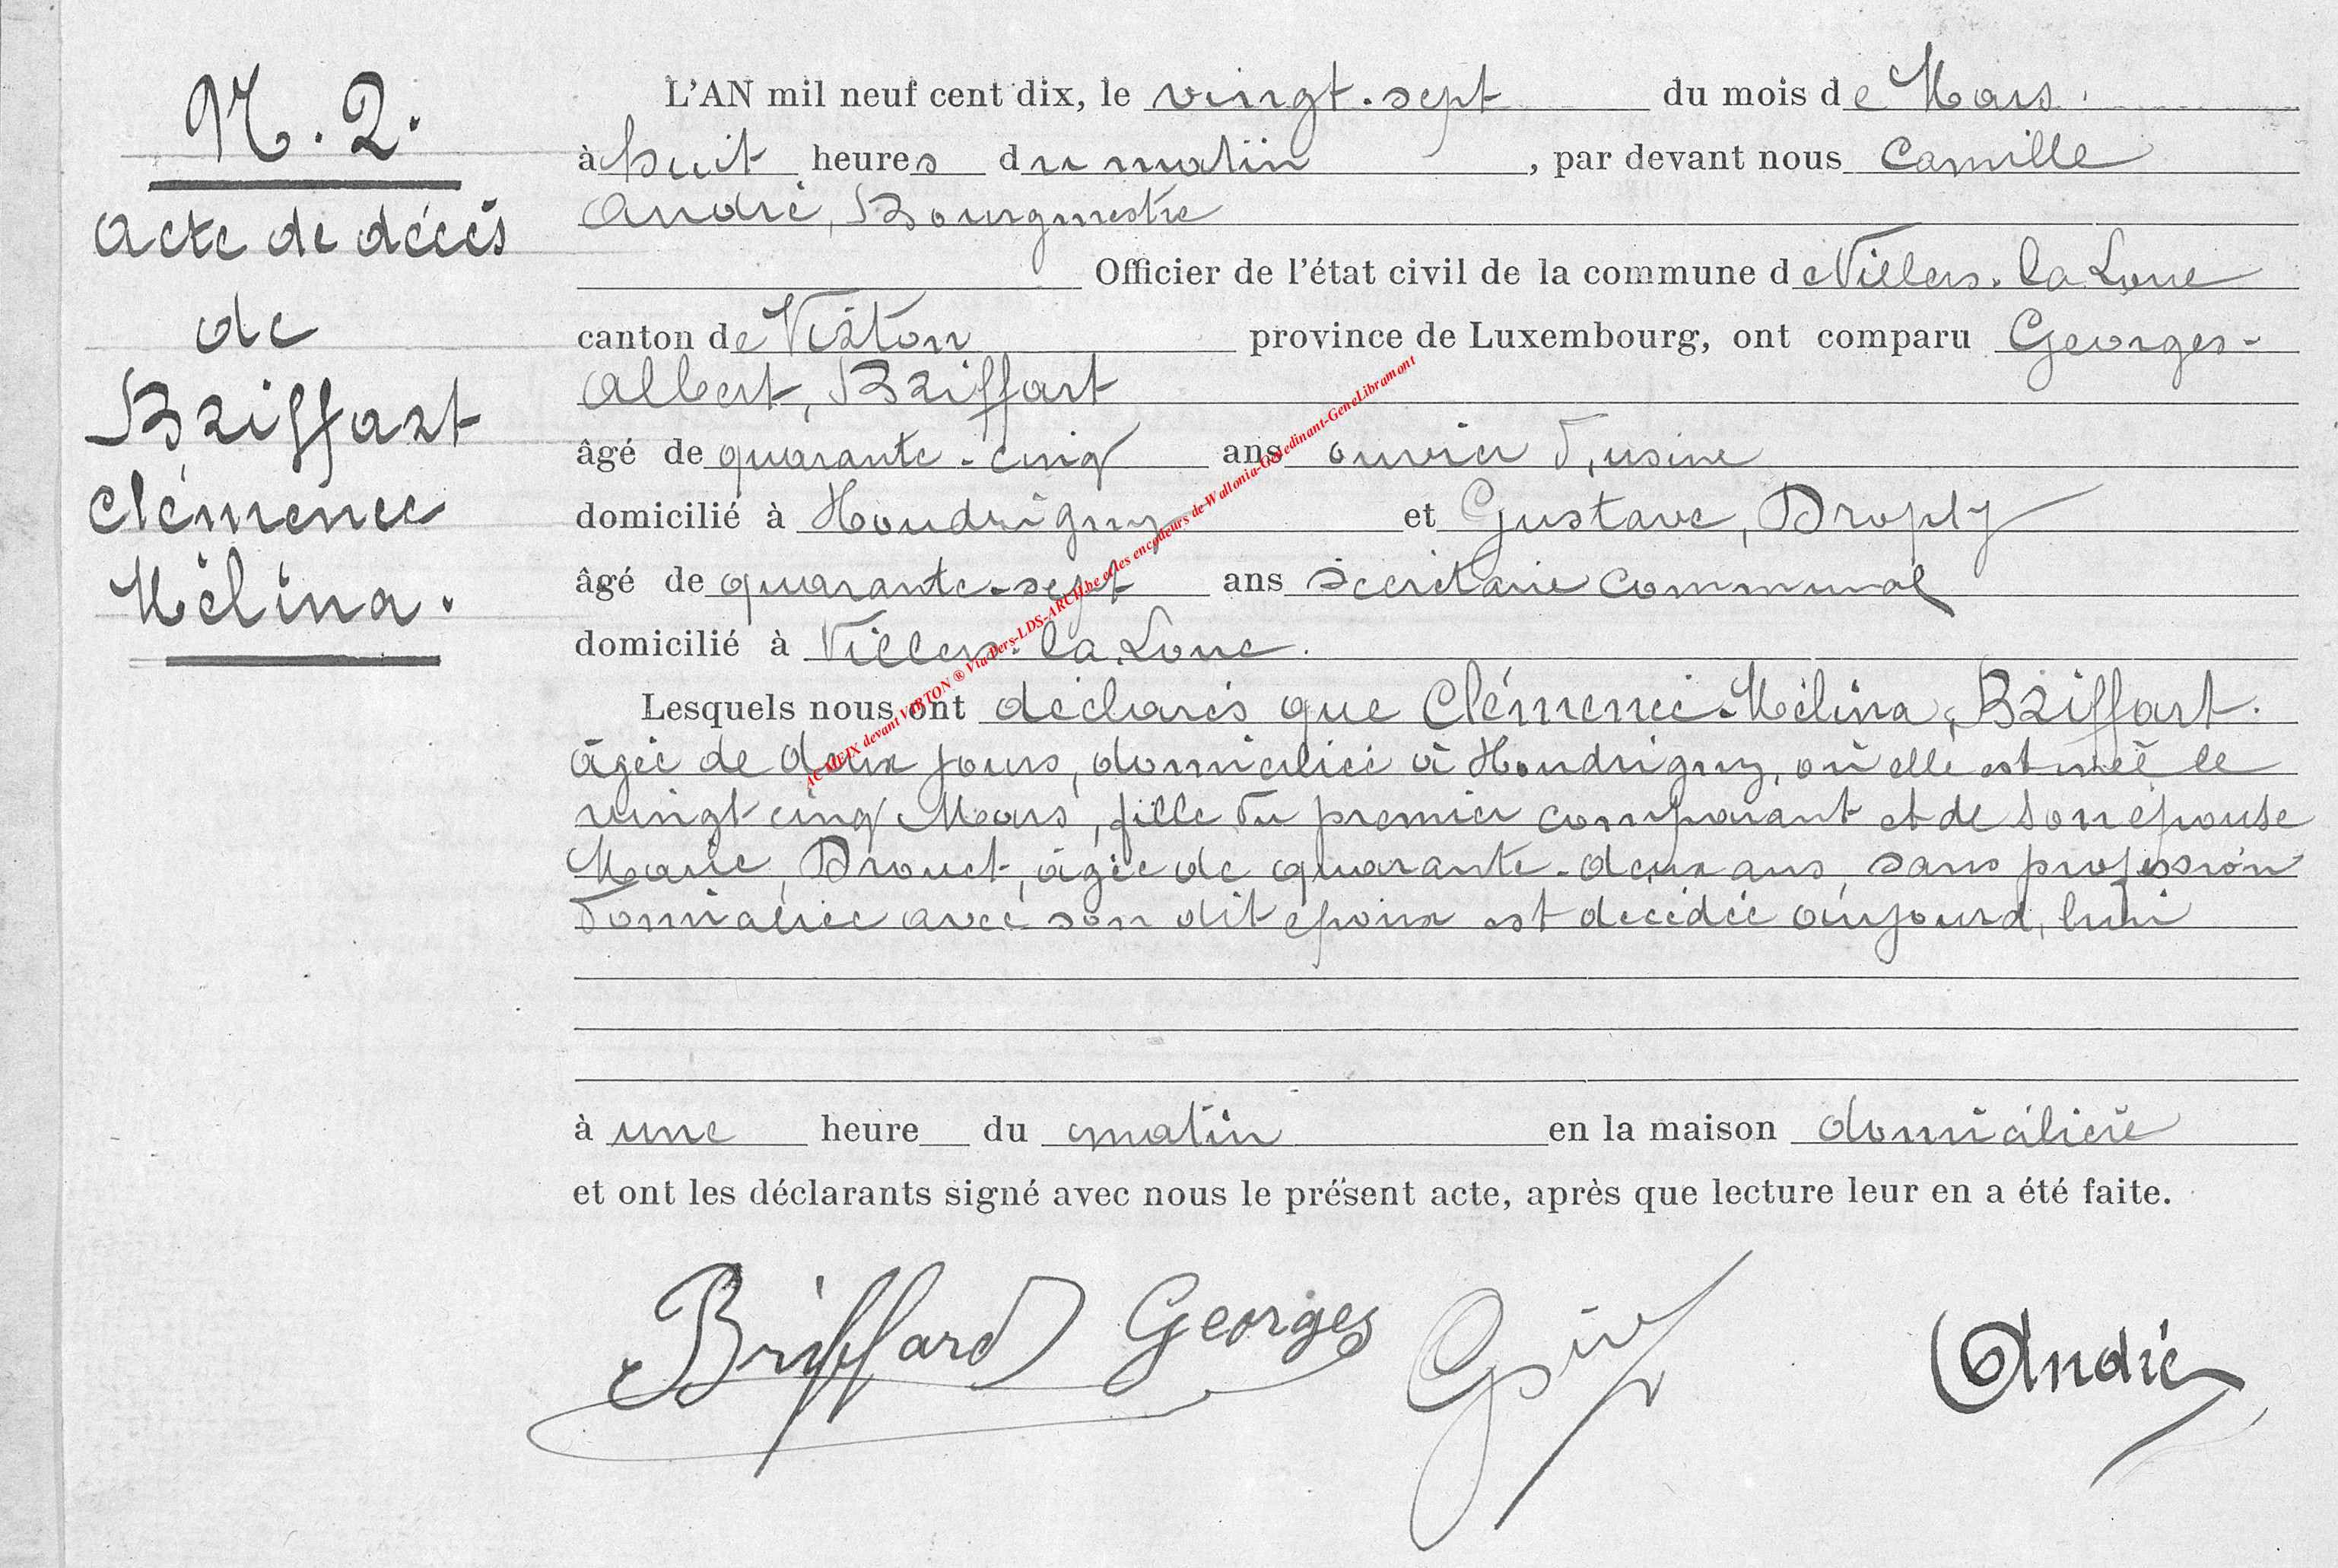 N. 2.
Acte de décès
de
Briffart
Clémence
Mélina.
L'AN mil neuf cent dix, le vingt-sept du mois de Mars
à huit heures du matin, par devant nous Camille
André, Bourgmestre
Officier de l'état civil de la commune de Villers-la-Loue
canton de Virton province de Luxembourg, ont comparu Georges-
Albert, Briffart
âgé de quarante-cinq ans ouvrier d'usine
domicilié à Houdrigny et Gustave, Dropsy
âgé de quarante-sept ans secrétaire communal
domicilié à Villers-la-Loue.
Lesquels nous ont déclarés que Clémence-Mélina, Briffart.
âgée de deux jours, domiciliée à Houdrigny, où elle est née le
vingt cinq Mars, fille du premier comparant et de son épouse
Marie, Drouet, âgée de quarante-deux ans, sans profession
domiciliée avec son dit époux est décédée aujourd'hui
à une heure du matin en la maison domiciliere
et ont les déclarants signé avec nous le présent acte, après que lecture leur en a été faite.
Briffard Georges André
AC MEIX devant VIRTON ® Via Pers-LDS-ARCH.be et les encodeurs de Wallonia-Genedinant-GeneLibramont